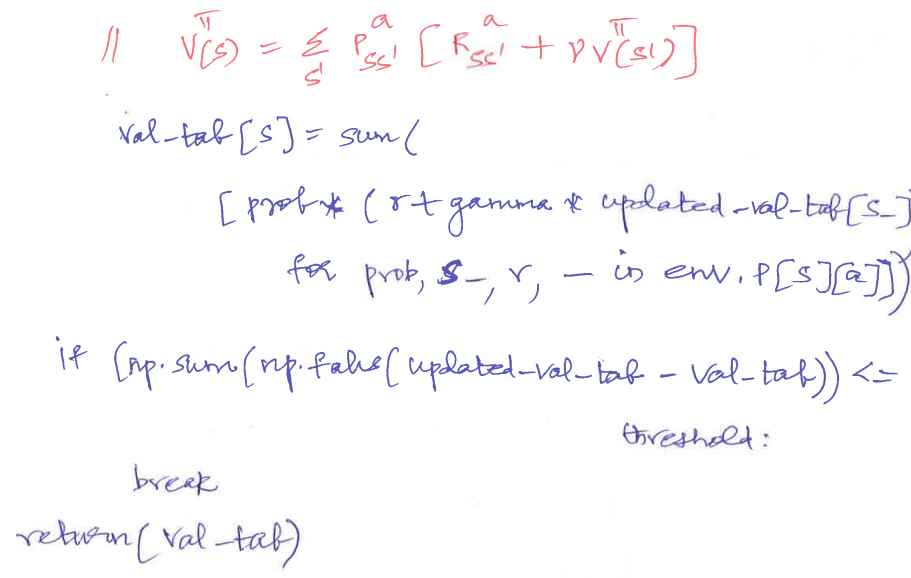 // V^π(s) = Σ_s' P^a_ss' [ R^a_ss' + γ V^π(s') ]
val_tab[s] = sum(
[prob * (r + gamma * updated_val_tab[s_]
for prob, s_, r, _ in env.P[s][a]])
if (np.sum(np.fabs(updated_val_tab - val_tab)) <=
threshold:
break
return(val_tab)